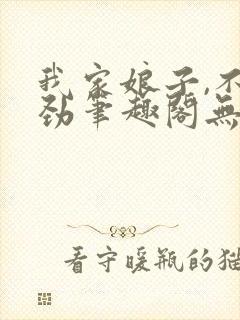 我家娘子,不
劲笔趣阁无
看守暖瓶的猫